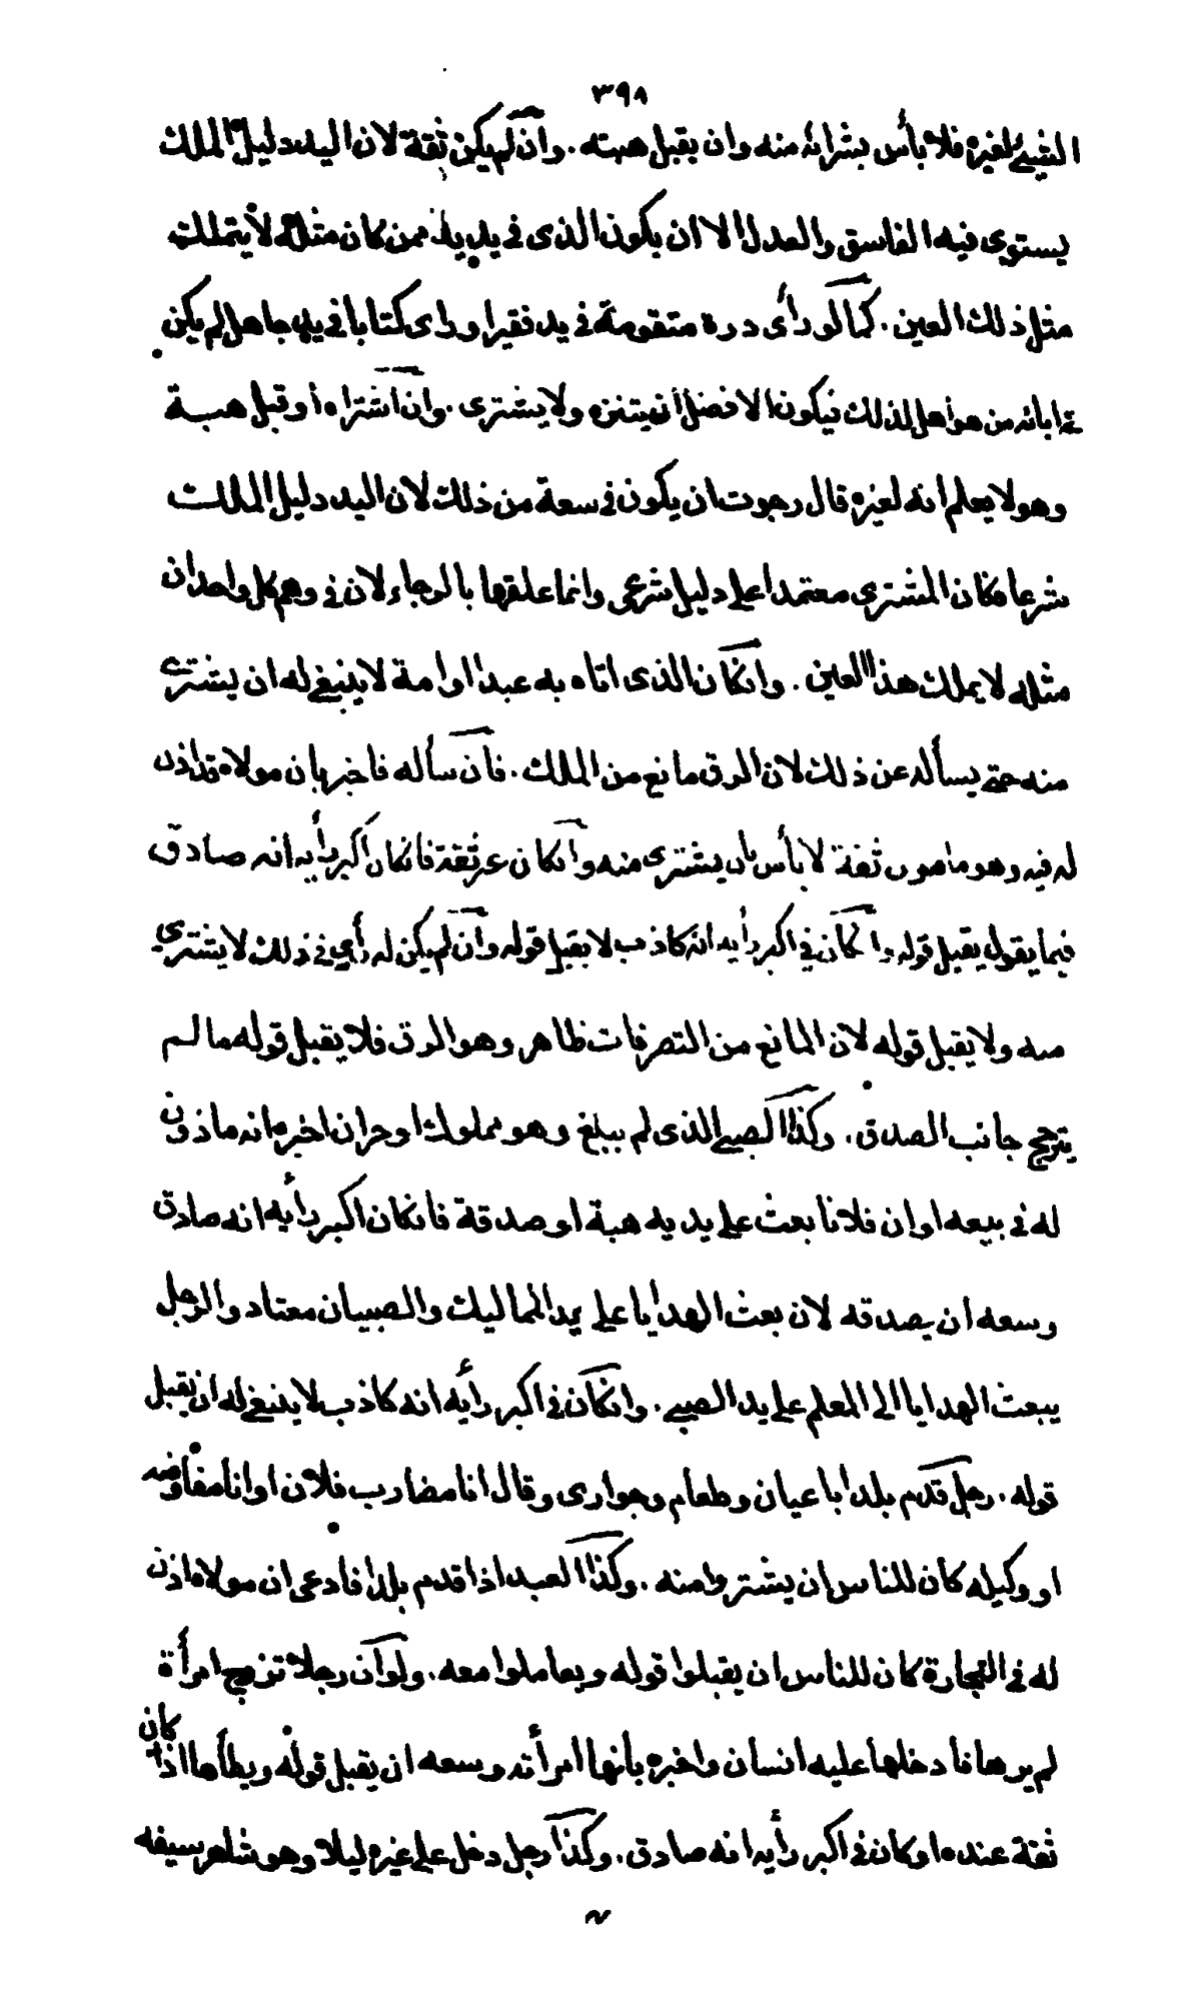 ٣٩٨
الشيئ لغيره فلا بأس بشرائه منه وان يقبل هبته . وان لم يكن ثقة لان اليد دليل الملك
يستوى فيه الفاسق والعدل الا ان يكون الذى فى يديه ممن كان مثله لا يتملك
مثل ذلك العين . كما لو رأى درة متقومة فى يد فقير او راى كتابا فى يد جاهل لم يكن
فى ابائه من هو أهل لذلك فيكون الافضل أن يتنزه ولا يشترى . وان اشتراه أو قبل هبة
وهو لا يعلم انه لغيره قال رجوت ان يكون فى سعة من ذلك لان اليد دليل الملك
شرعا فكان المشترى معتمدا على دليل شرعى وانما علقها بالرجاء لان فى وهم كل واحد ان
مثله لا يملك هذا العين . وانكان الذى اتاه به عبدا او امة لا ينبغى له ان يشترى
منه حتى يسأله عن ذلك لان الرق مانع من الملك . فان سأله فاخبر بان مولاه قد اذن
له فيه وهو مامون ثقة لا بأس بان يشترى منه وانكان غير ثقة فانكان اكبر رأيه انه صادق
فيما يقول يقبل قوله وانكان فى اكبر رأيه انه كاذب لا يقبل قوله وان لم يكن له رأي فى ذلك لا يشترى
منه ولا يقبل قوله لان المانع من التصرفات ظاهر وهو الرق فلا يقبل قوله ما لم
يترجح جانب الصدق . وكذا الصبى الذى لم يبلغ وهو مملوك او حر ان اخبره انه ماذون
له فى بيعه او ان فلانا بعث على يديه هبة او صدقة فانكان اكبر رأيه انه صادق
وسعه أن يصدقه لان بعث الهدايا على يد المماليك والصبيان معتاد والرجل
يبعث الهدايا الى المعلم على يد الصبى . وانكان فى اكبر رأيه انه كاذب لا ينبغى له ان يقبل
قوله . رجل قدم بلدا باعيان وطعام وجوارى وقال انا مضارب فلان او انا مفاوضه
او وكيله كان للناس ان يشتروا منه . وكذا العبد اذا قدم بلدا فادعى ان مولاه اذن
له فى التجارة كان للناس ان يقبلوا قوله ويعاملوا معه . ولو ان رجلا تزوج امرأة
لم يرها فادخلها عليه انسان واخبره بأنها امرأته وسعه ان يقبل قوله ويطأها اذا كان
ثقة عنده او كان فى اكبر رأيه انه صادق . وكذا رجل دخل على غيره ليلا وهو شاهر سيفه